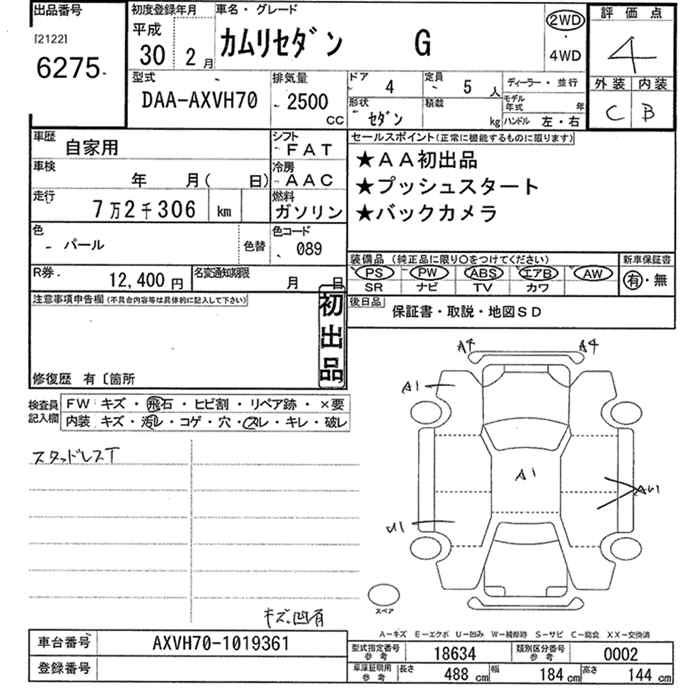 出品番号
[2122]
6275
初度登録年月
平成
30 2月
車名・グレード
カムリセダン G
2WD
・
4WD
評価点
4
外装 内装
C B
型式
DAA-AXVH70
排気量
2500
CC
ドア
4
定員
5 人
形状
セダン
積載
kg
ディーラー・並行
モデル年式 年
ハンドル 左・右
車歴
自家用
シフト
FAT
車検
年 月( 日)
冷房
AAC
走行
7万2千306 km
燃料
ガソリン
色
パール
色替
色コード
089
R券
12,400円
名変通知期限
月 日
セールスポイント(正常に機能するものに限ります)
★AA初出品
★プッシュスタート
★バックカメラ
装備品(純正品に限り○をつけてください)
新車保証書
PS PW ABS エアB AW
SR ナビ TV カワ
有・無
後日品
保証書・取説・地図SD
注意事項申告欄(不具合内容等は具体的に記入して下さい)
初出品
修復歴 有〔箇所
検査員記入欄
FW キズ・飛石・ヒビ割・リペア跡・×要
内装 キズ・汚レ・コゲ・穴・スレ・キレ・破レ
スタッドレスT
キズ、凹有
A4 A4
A1
A1
AU1
U1
スペア
A―キズ E―エクボ U―凹み W―補修跡 S―サビ C―腐食 XX―交換済
車台番号
AXVH70-1019361
登録番号
型式指定番号
参考
18634
類別区分番号
参考
0002
車庫証明用
参考
長さ 488 cm 幅 184 cm 高さ 144 cm